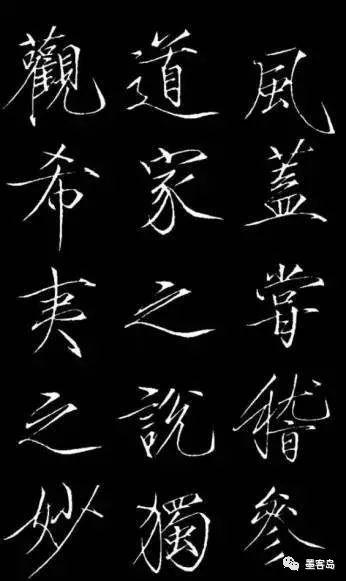 風蓋嘗稽參
道家之說獨
觀希夷之妙
墨客岛